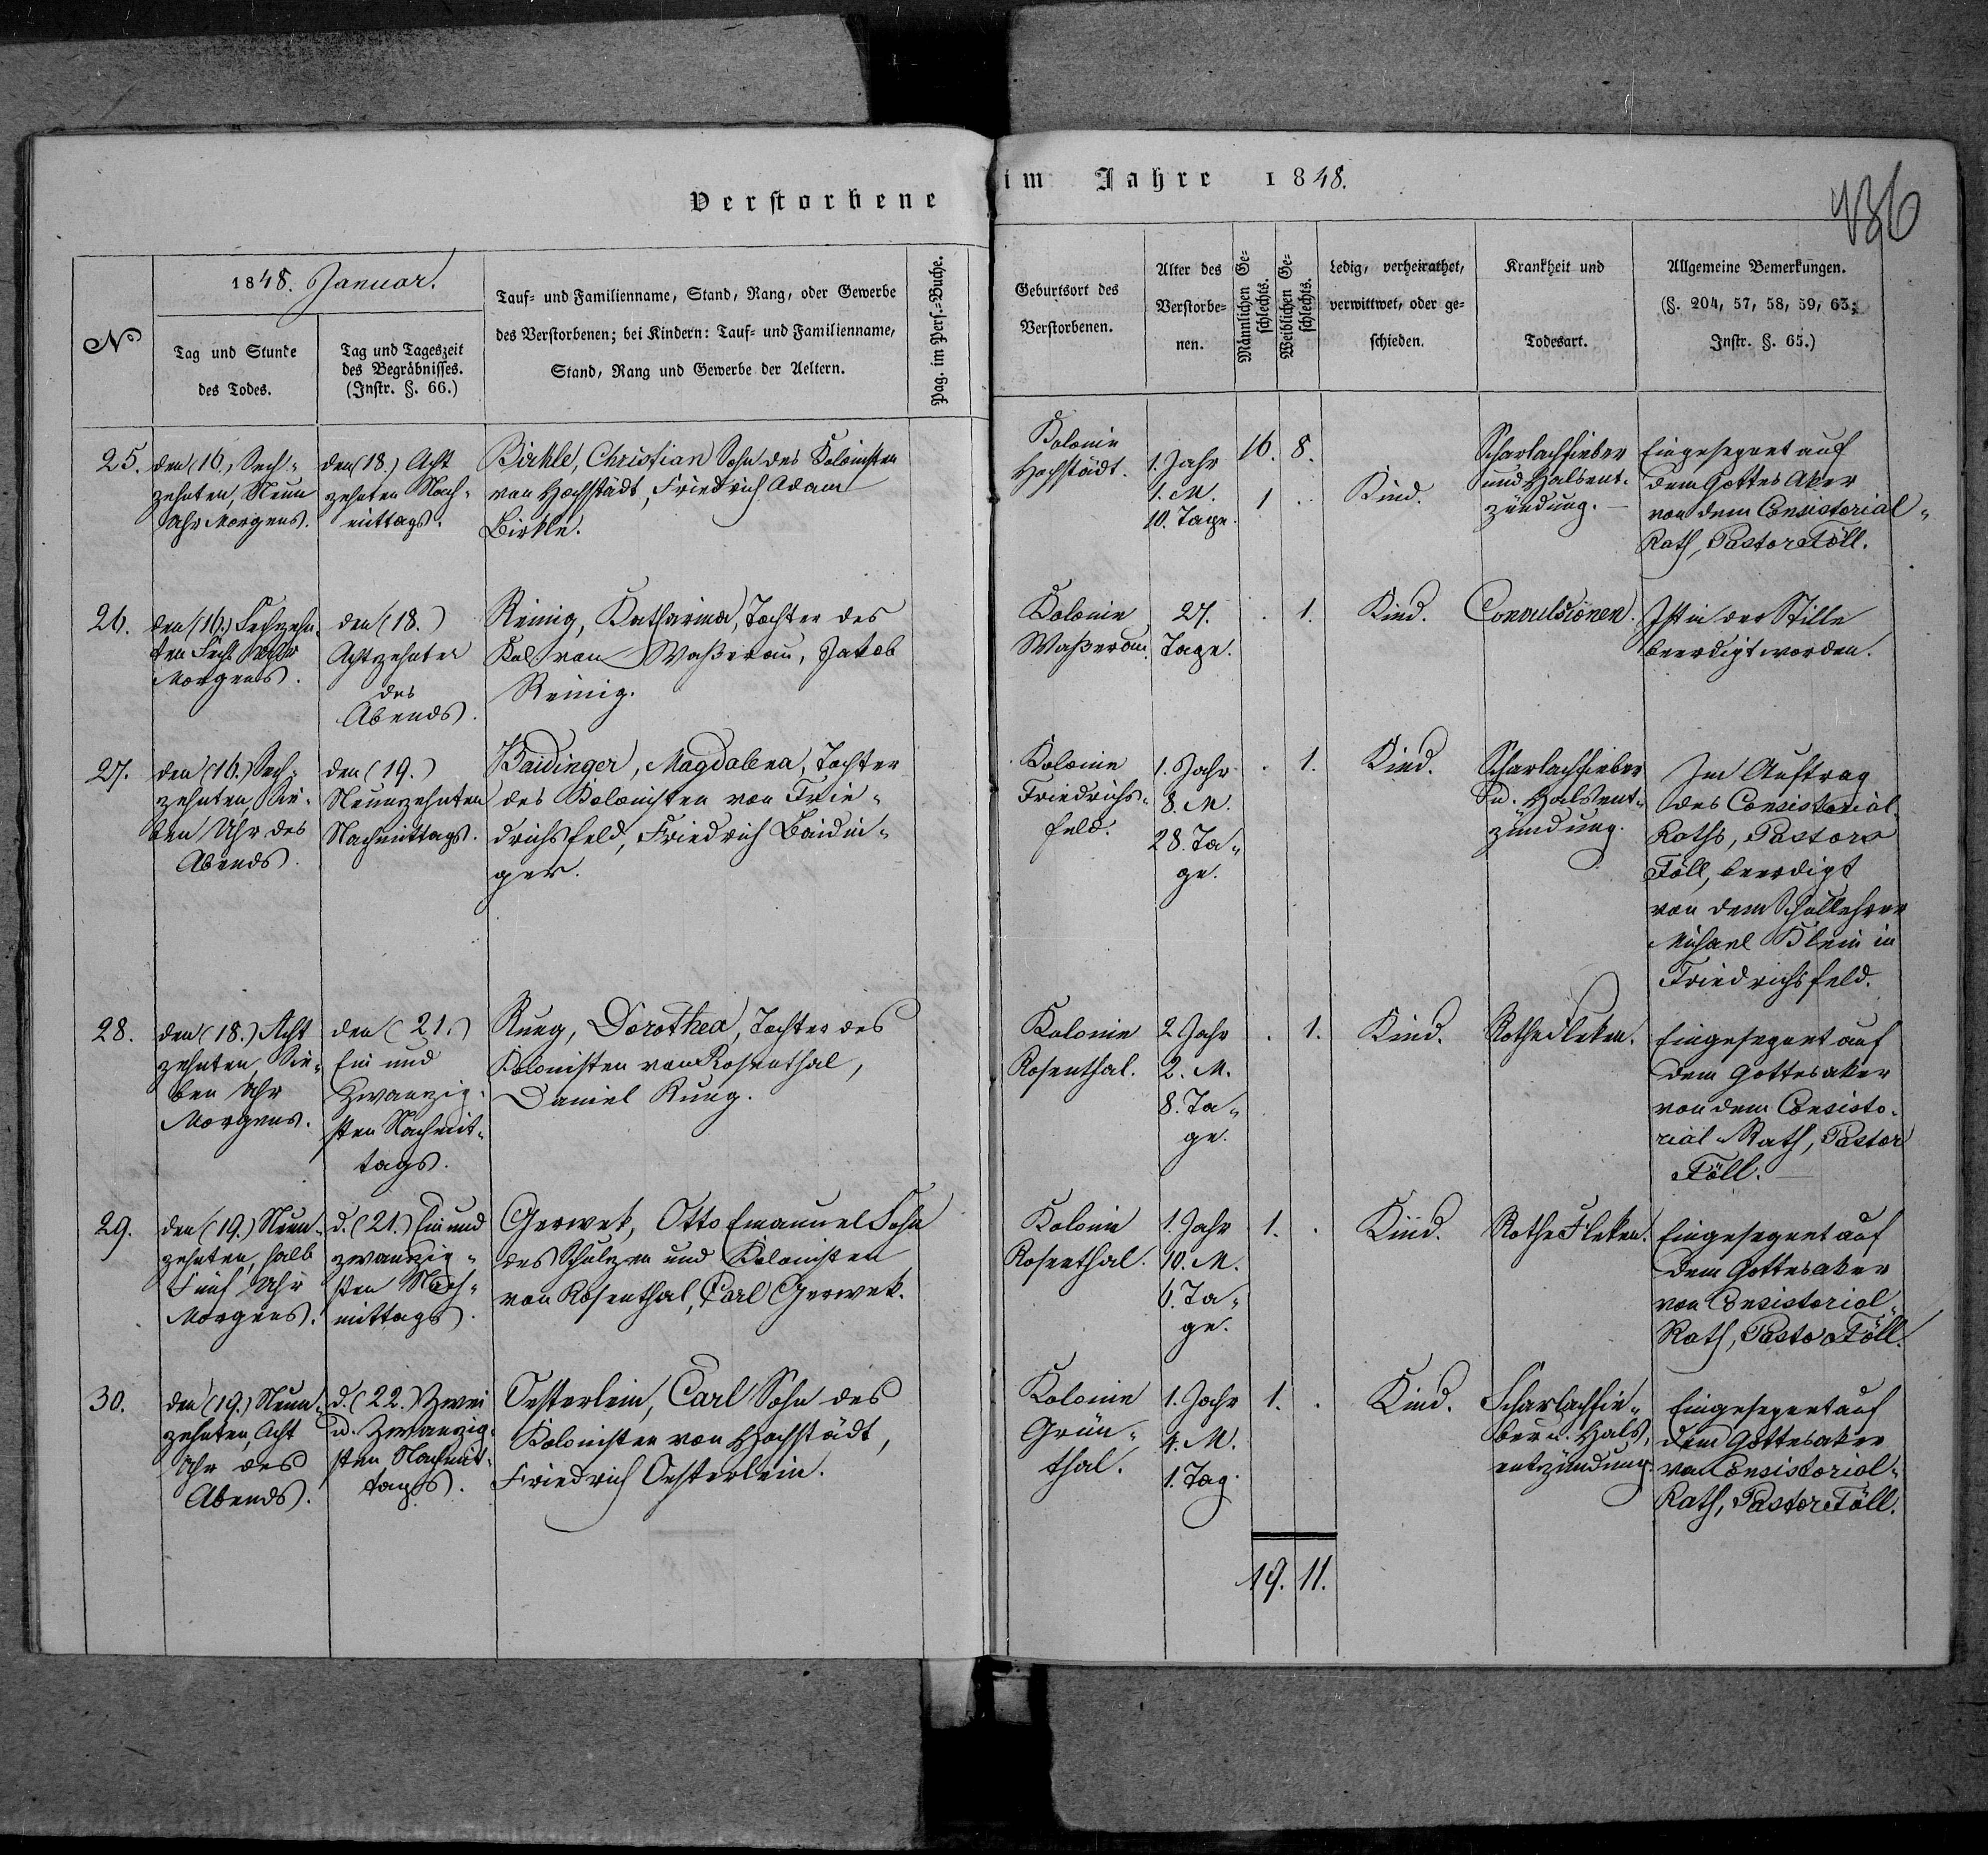 Verstorbene im Jahre 1848.
436
1848. Januar.
No
Tag und Stunde
des Todes.
Tag und Tageszeit
des Begräbnisses.
(Instr. §. 66.)
Tauf- und Familienname, Stand, Rang, oder Gewerbe
des Verstorbenen; bei Kindern: Tauf- und Familienname,
Stand, Rang und Gewerbe der Aeltern.
Pag. im Pers.-Buche.
Geburtsort des
Verstorbenen.
Alter des
Verstorbe-
nen.
Männlichen Ge-
schlechts.
Weiblichen Ge-
schlechts.
Ledig, verheirathet,
verwittwet, oder ge-
schieden.
Krankheit und
Todesart.
Allgemeine Bemerkungen.
(§. 204, 57, 58, 59, 63;
Instr. §. 65.)
16. 8.
25.
den (16.) Sech-
zehnten, Neun
Uhr Morgens.
den (18.) Acht
zehnten Nach-
mittags.
Birkle, Christian Sohn des Kolonisten
von Hochstädt, Friedrich Adam
Birkle.
Kolonie
Hochstädt.
1. Jahr
1. M.
10. Tage.
1 .
Kind.
Scharlachfieber
und Halsent-
zündung. —
Eingesegnet auf
dem Gottes Aker
von dem Consistorial-
Rath, Pastor Föll.
26.
den (16.) Sechzehn-
ten Sechs Uhr
Morgens.
den (18.)
Achtzehnten
des
Abends.
Reinig, Katharina, Tochter des
Kol. von Waßerau, Jakob
Reinig.
Kolonie
Waßerau.
27.
Tage.
. 1.
Kind.
Convulsionen.
Ist in der Stille
beerdigt worden.
27.
den (16.) Sech-
zehnten, Sie-
ben Uhr des
Abends.
den (19.)
Neunzehnten
Nachmittags.
Baidinger, Magdalena, Tochter
des Kolonisten von Frie-
drichsfeld, Friedrich Baidin-
ger.
Kolonie
Friedrichs-
feld.
1. Jahr
8. M.
28. Ta-
ge.
. 1.
Kind.
Scharlachfieber
u. Halsent-
zündung.
Im Auftrag
des Consistorial-
Raths, Pastors
Föll, beerdigt
von dem Schullehrer
Michael Klein in
Friedrichsfeld.
28.
den (18.) Acht
zehnten, Sie-
ben Uhr
Morgens.
den (21.)
Ein und
Zwanzig-
sten Nachmit-
tags.
Rueg, Dorothea, Tochter des
Kolonisten von Rosenthal,
Daniel Rueg.
Kolonie
Rosenthal.
2. Jahr
2. M.
8. Ta-
ge.
. 1.
Kind.
Rothe Fleken.
Eingesegnet auf
dem Gottesaker
von dem Consisto-
rial-Rath, Pastor
Föll. —
29.
den (19.) Neun-
zehnten, halb
Fünf Uhr
Morgens.
d. (21.) Ein und
zwanzig-
sten Nach-
mittags.
Gerwek, Otto Emanuel Sohn
des Schulzen und Kolonisten
von Rosenthal, Carl Gerwek.
Kolonie
Rosenthal.
1. Jahr
10. M.
6. Ta-
ge.
1. .
Kind.
Rothe Fleken.
Eingesegnet auf
dem Gottesaker
von Consistorial-
Rath, Pastor Föll.
30.
den (19.) Neun-
zehnten, Acht
Uhr des
Abends.
d. (22.) Zwei
u. Zwanzig-
sten Nachmit-
tags.
Oesterlein, Carl Sohn des
Kolonisten von Hochstädt,
Friedrich Oesterlein.
Kolonie
Grün-
thal.
1. Jahr
4. M.
1. Tag.
1. .
Kind.
Scharlachfie-
ber u. Hals-
entzündung.
Eingesegnet auf
dem Gottesaker
von Consistorial-
Rath, Pastor Föll.
19. 11.